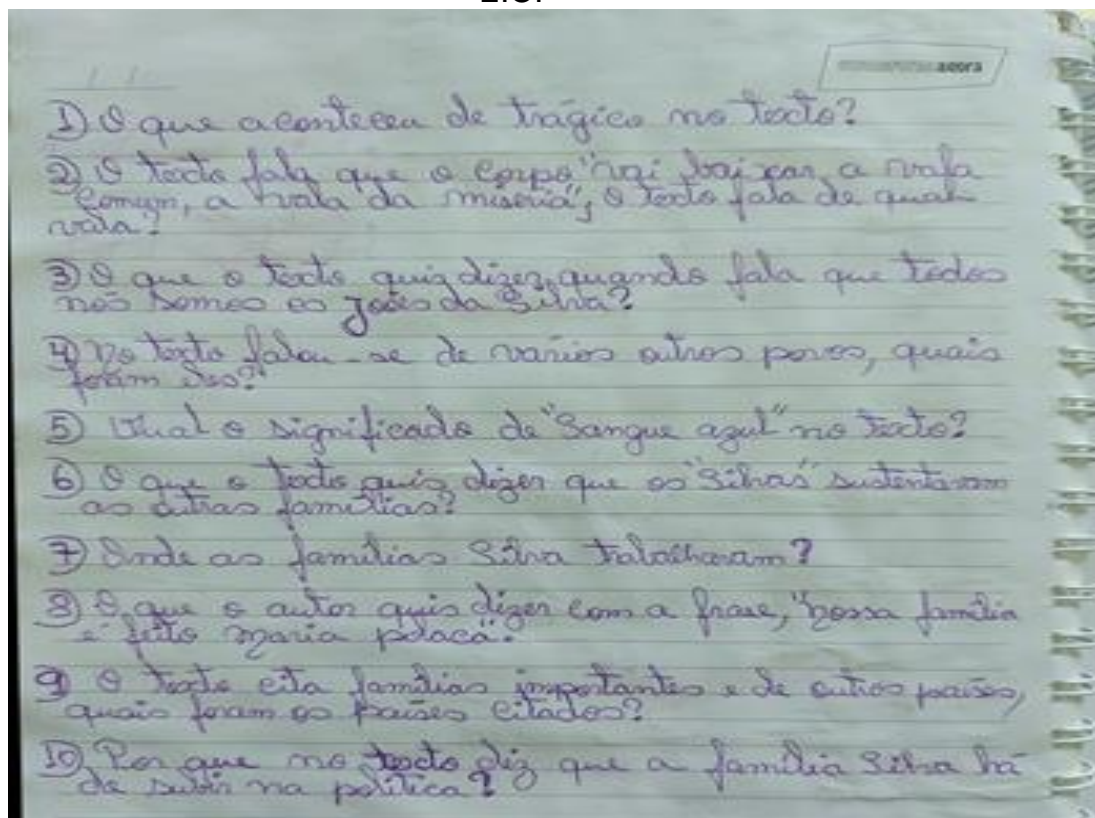 agora
1) O que aconteceu de trágico no texto?
2) O texto fala que o corpo "vai baixar a vala
comum, a vala da miséria", o texto fala de qual
vala?
3) O que o texto quiz dizer, quando fala que todos
nós somos os Joões da Silva?
4) No texto falou-se de varios outros povos, quais
foram eles?
5) Qual o significado de "Sangue azul" no texto?
6) O que o texto quis dizer que os "Silvas" sustentavam
as outras famílias?
7) Onde as famílias Silva trabalharam?
8) O que o autor quis dizer com a frase, "nossa família
é feito maria polaca".
9) O texto cita famílias importantes e de outros países,
quais foram os países citados?
10) Por que no texto diz que a família Silva há
de subir na política?